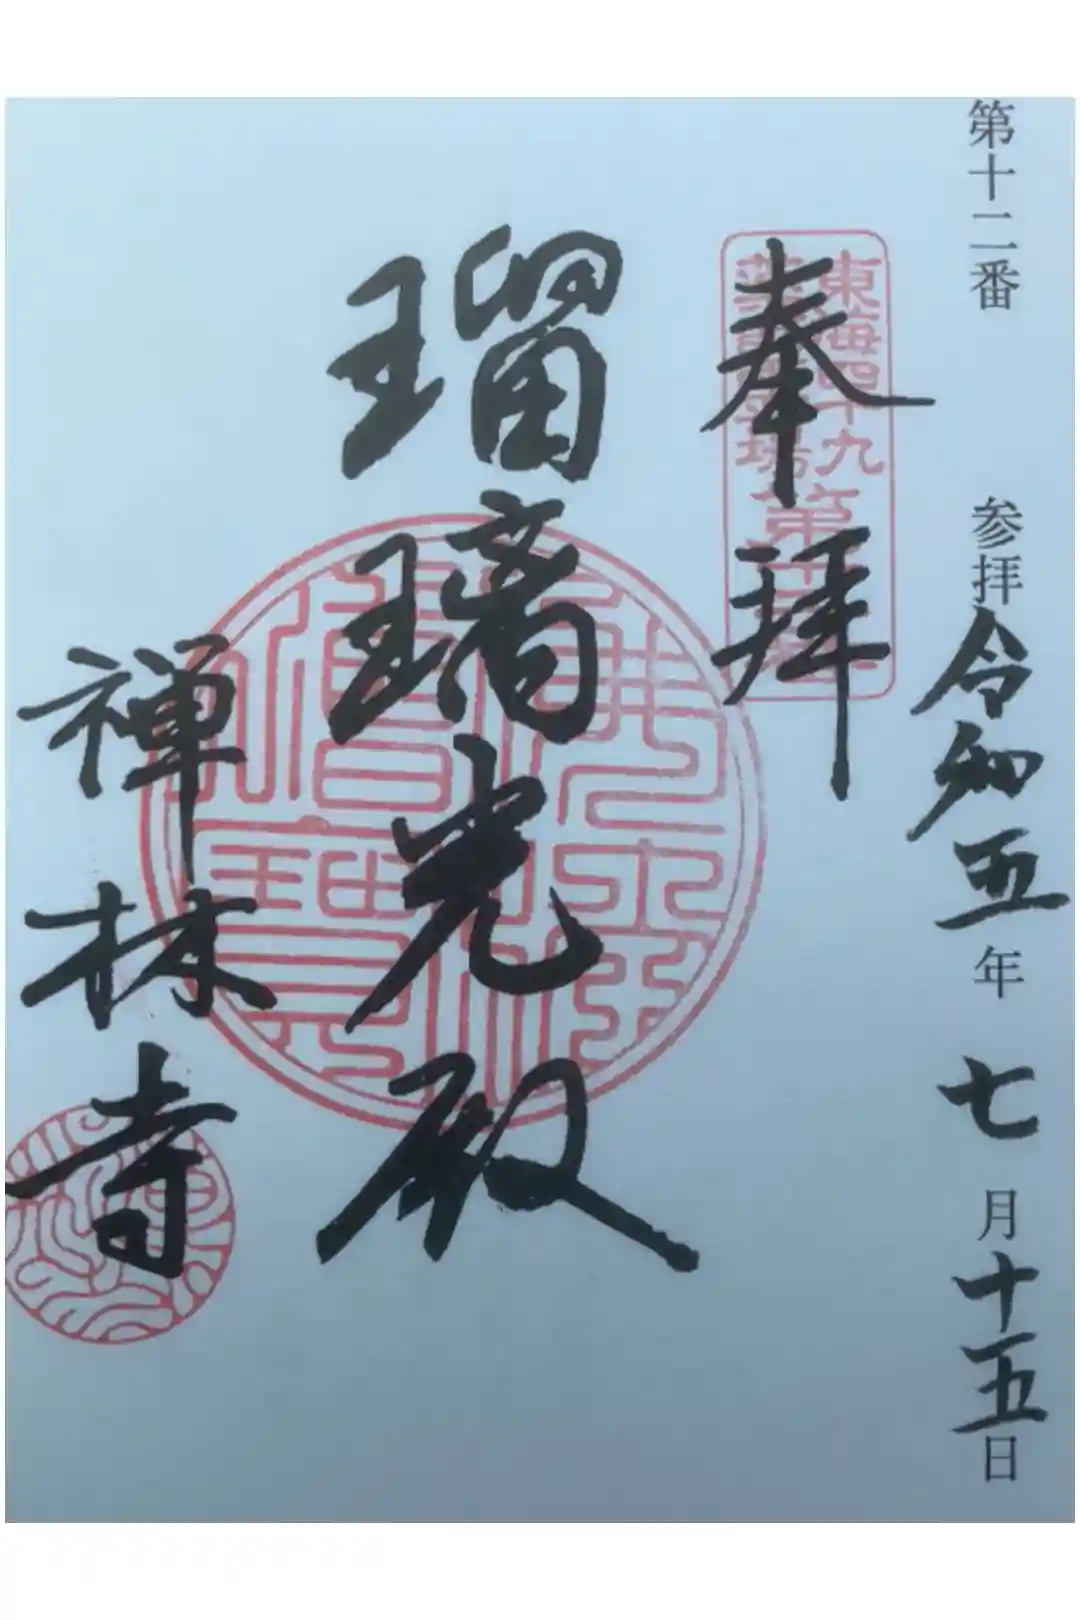 第十二番 参拝令和五年 七月十五日
奉拝
東海四十九
薬師霊場
第十二番
瑠璃光殿
佛法僧寶
禅林寺